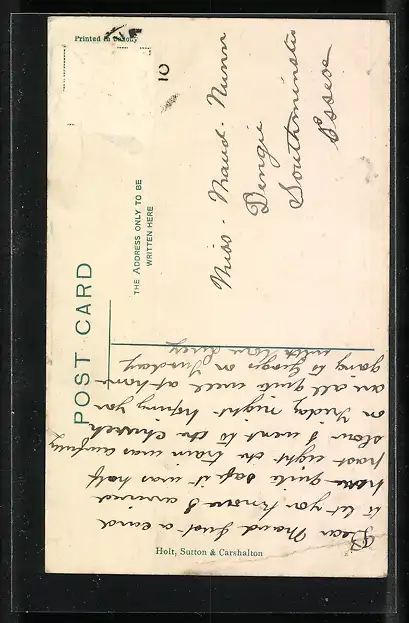 Printed in Saxony
POST CARD
THE ADDRESS ONLY TO BE
WRITTEN HERE
10
Miss. Maud. Nunn
Dengie
Southminster
Essex
Dear Maud Just a card
to let you know I arrived
home quite safe it was half
past eight the train was awfully
slow I went to the church
on Friday night hoping you
are all quite well at home
going to Georges on Sunday
with love Lucy
Holt, Sutton & Carshalton